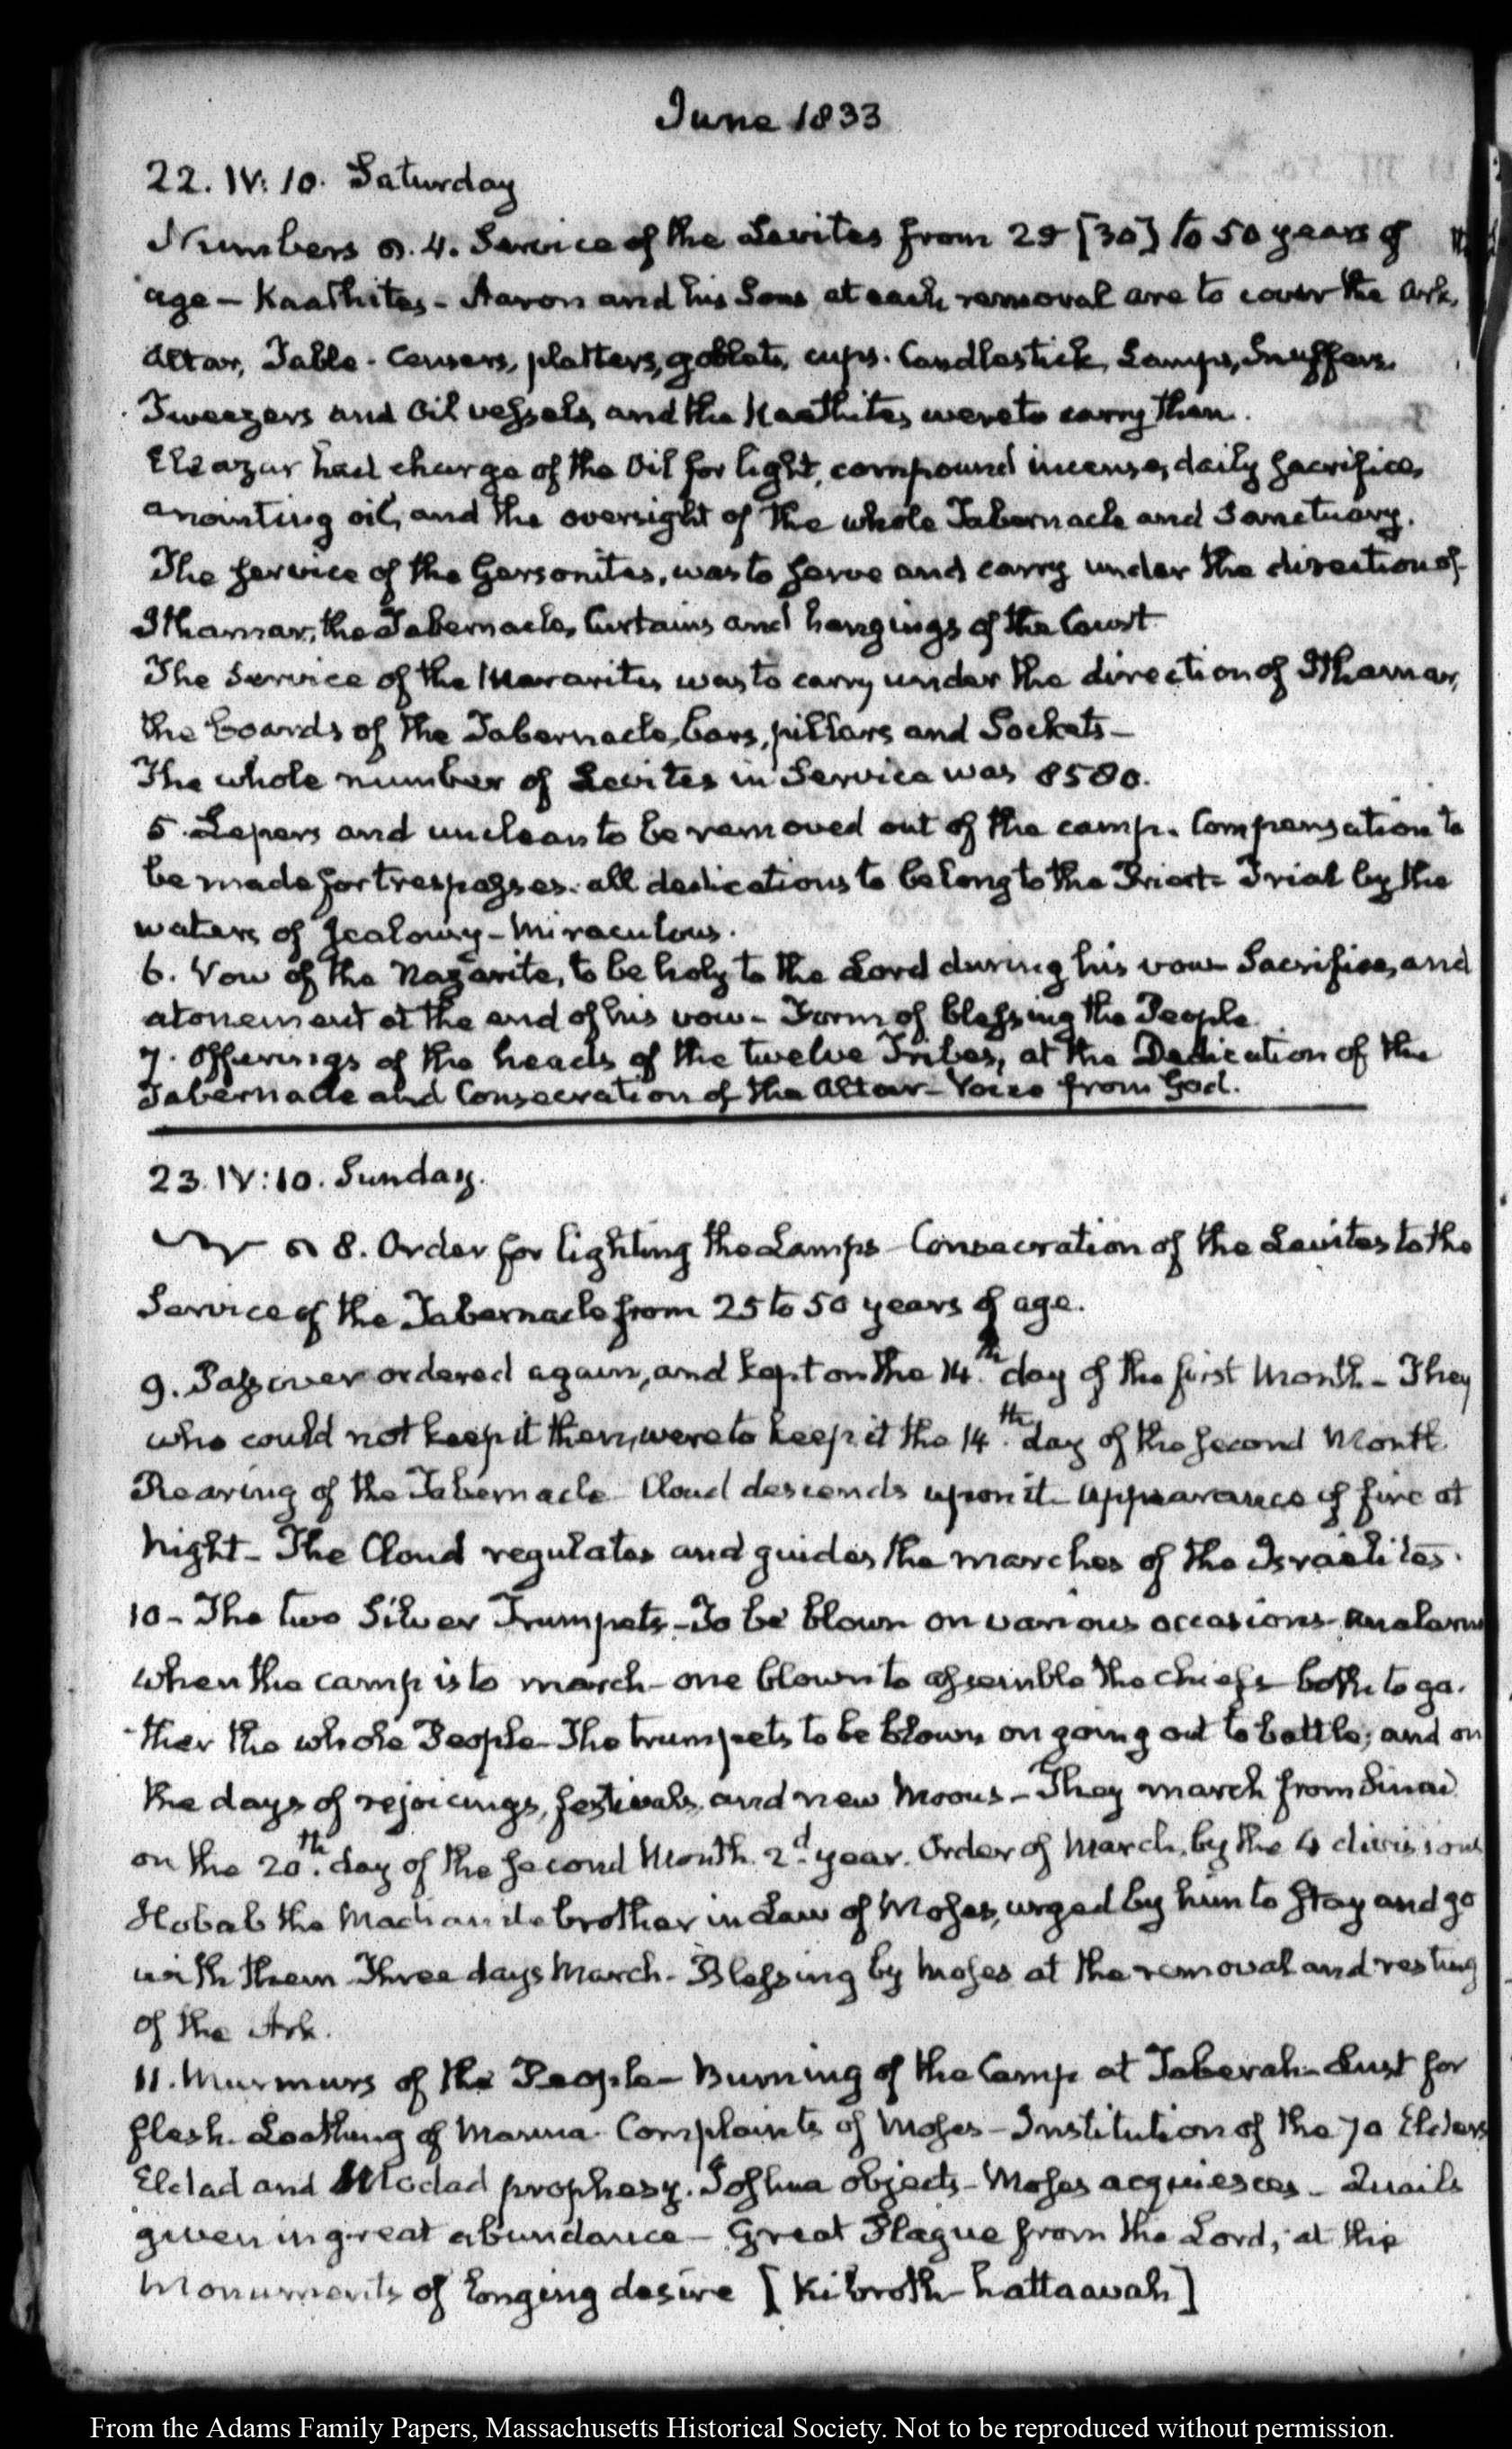 June 1833
22. IV: 10. Saturday
Numbers 4. Service of the Levites from 25 [30] to 50 years of
age – Kaathites – Aaron and his Sons at each removal are to cover the Ark,
Altar, Table. Censers, platters, goblets, cups. Candlestick, Lamps, Snuffers,
Tweezers and Oil vessels, and the Kaathites were to carry them.
Eleazar had charge of the Oil for light, compound incense, daily sacrifice,
anointing oil, and the oversight of the whole Tabernacle and Sanctuary.
The service of the Gersonites, was to serve and carry under the direction of
Ithamar, the Tabernacle, Curtains and hangings of the Court
The Service of the Mararites was to carry under the direction of Ithamar,
the boards of the Tabernacle, bars, pillars and Sockets –
The whole number of Levites in Service was 8580.
5. Lepers and unclean to be removed out of the camp. Compensation to
be made for trespasses. all dedications to belong to the Priest – Trial by the
waters of Jealousy – Miraculous.
6. Vow of the Nazarite, to be holy to the Lord during his vow – Sacrifice, and
atonement at the end of his vow – Form of blessing the People.
7. Offerings of the heads of the twelve Tribes, at the Dedication of the
Tabernacle and Consecration of the Altar – Voice from God.
23. IV: 10. Sunday.
8. Order for lighting the Lamps – Consecration of the Levites to the
Service of the Tabernacle from 25 to 50 years of age.
9. Passover ordered again, and kept on the 14th. day of the first Month – They
who could not keep it then, were to keep it the 14th. day of the second Month
Rearing of the Tabernacle – Cloud descends upon it – appearance of fire at
Night – The Cloud regulates and guides the marches of the Israelites.
10 – The two Silver Trumpets – To be blown on various occasions – an alarm
when the camp is to march – one blown to assemble the chiefs – both to ga-
-ther the whole People – The trumpets to be blown on going out to battle; and on
the days of rejoicings, festivals, and new Moons – They march from Sinai
on the 20th. day of the second Month 2d. year. Order of March, by the 4 divisions
Hobab the brother in Law of Moses, urged by him to stay and go
with them – Three days March – Blessing by Moses at the removal and resting
of the Ark.
11. Murmurs of the People – Burning of the Camp at Taberah – Lust for
flesh – Loathing of Manna – Complaints of Moses – Institution of the 70 Elders
Eldad and Modad prophesy. Joshua objects – Moses acquiesces – Quails
given in great abundance – Great Plague from the Lord, at the
Monuments of longing desire [Kibroth-hattaavah]
From the Adams Family Papers, Massachusetts Historical Society. Not to be reproduced without permission.